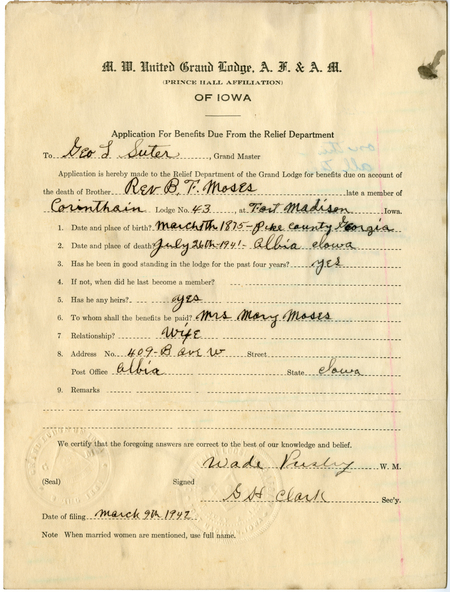 M. W. United Grand Lodge, A. F. & A. M.
(PRINCE HALL AFFILIATION)
OF IOWA
Application For Benefits Due From the Relief Department
To Geo L Suter, Grand Master
Application is hereby made to the Relief Department of the Grand Lodge for benefits due on account of
the death of Brother Rev B. T. Moses late a member of
Corinthain Lodge No. 43, at Fort Madison Iowa.
1. Date and place of birth? March 5th 1875- Pike County Georgia
2. Date and place of death? July 26th-1941- Albia Iowa
3. Has he been in good standing in the lodge for the past four years? yes
4. If not, when did he last become a member?
5. Has he any heirs? yes
6. To whom shall the benefits be paid? Mrs Mary Moses
7 Relationship? Wife
8. Address No. 409-B ave W Street
Post Office Albia State Iowa
9. Remarks
We certify that the foregoing answers are correct to the best of our knowledge and belief.
Wade W. M.
(Seal) Signed
G H Clark Sec'y.
Date of filing March 9th 1942
Note When married women are mentioned, use full name.